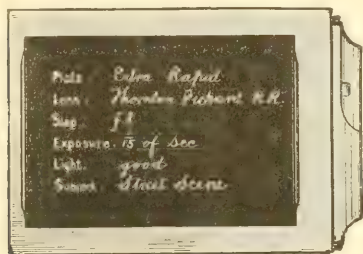 Plate. Extra Rapid
Lens. Thornton Pickard R.R.
Stop. f8
Exposure. 1/15 of sec
Light. good
Subject. Street Scene